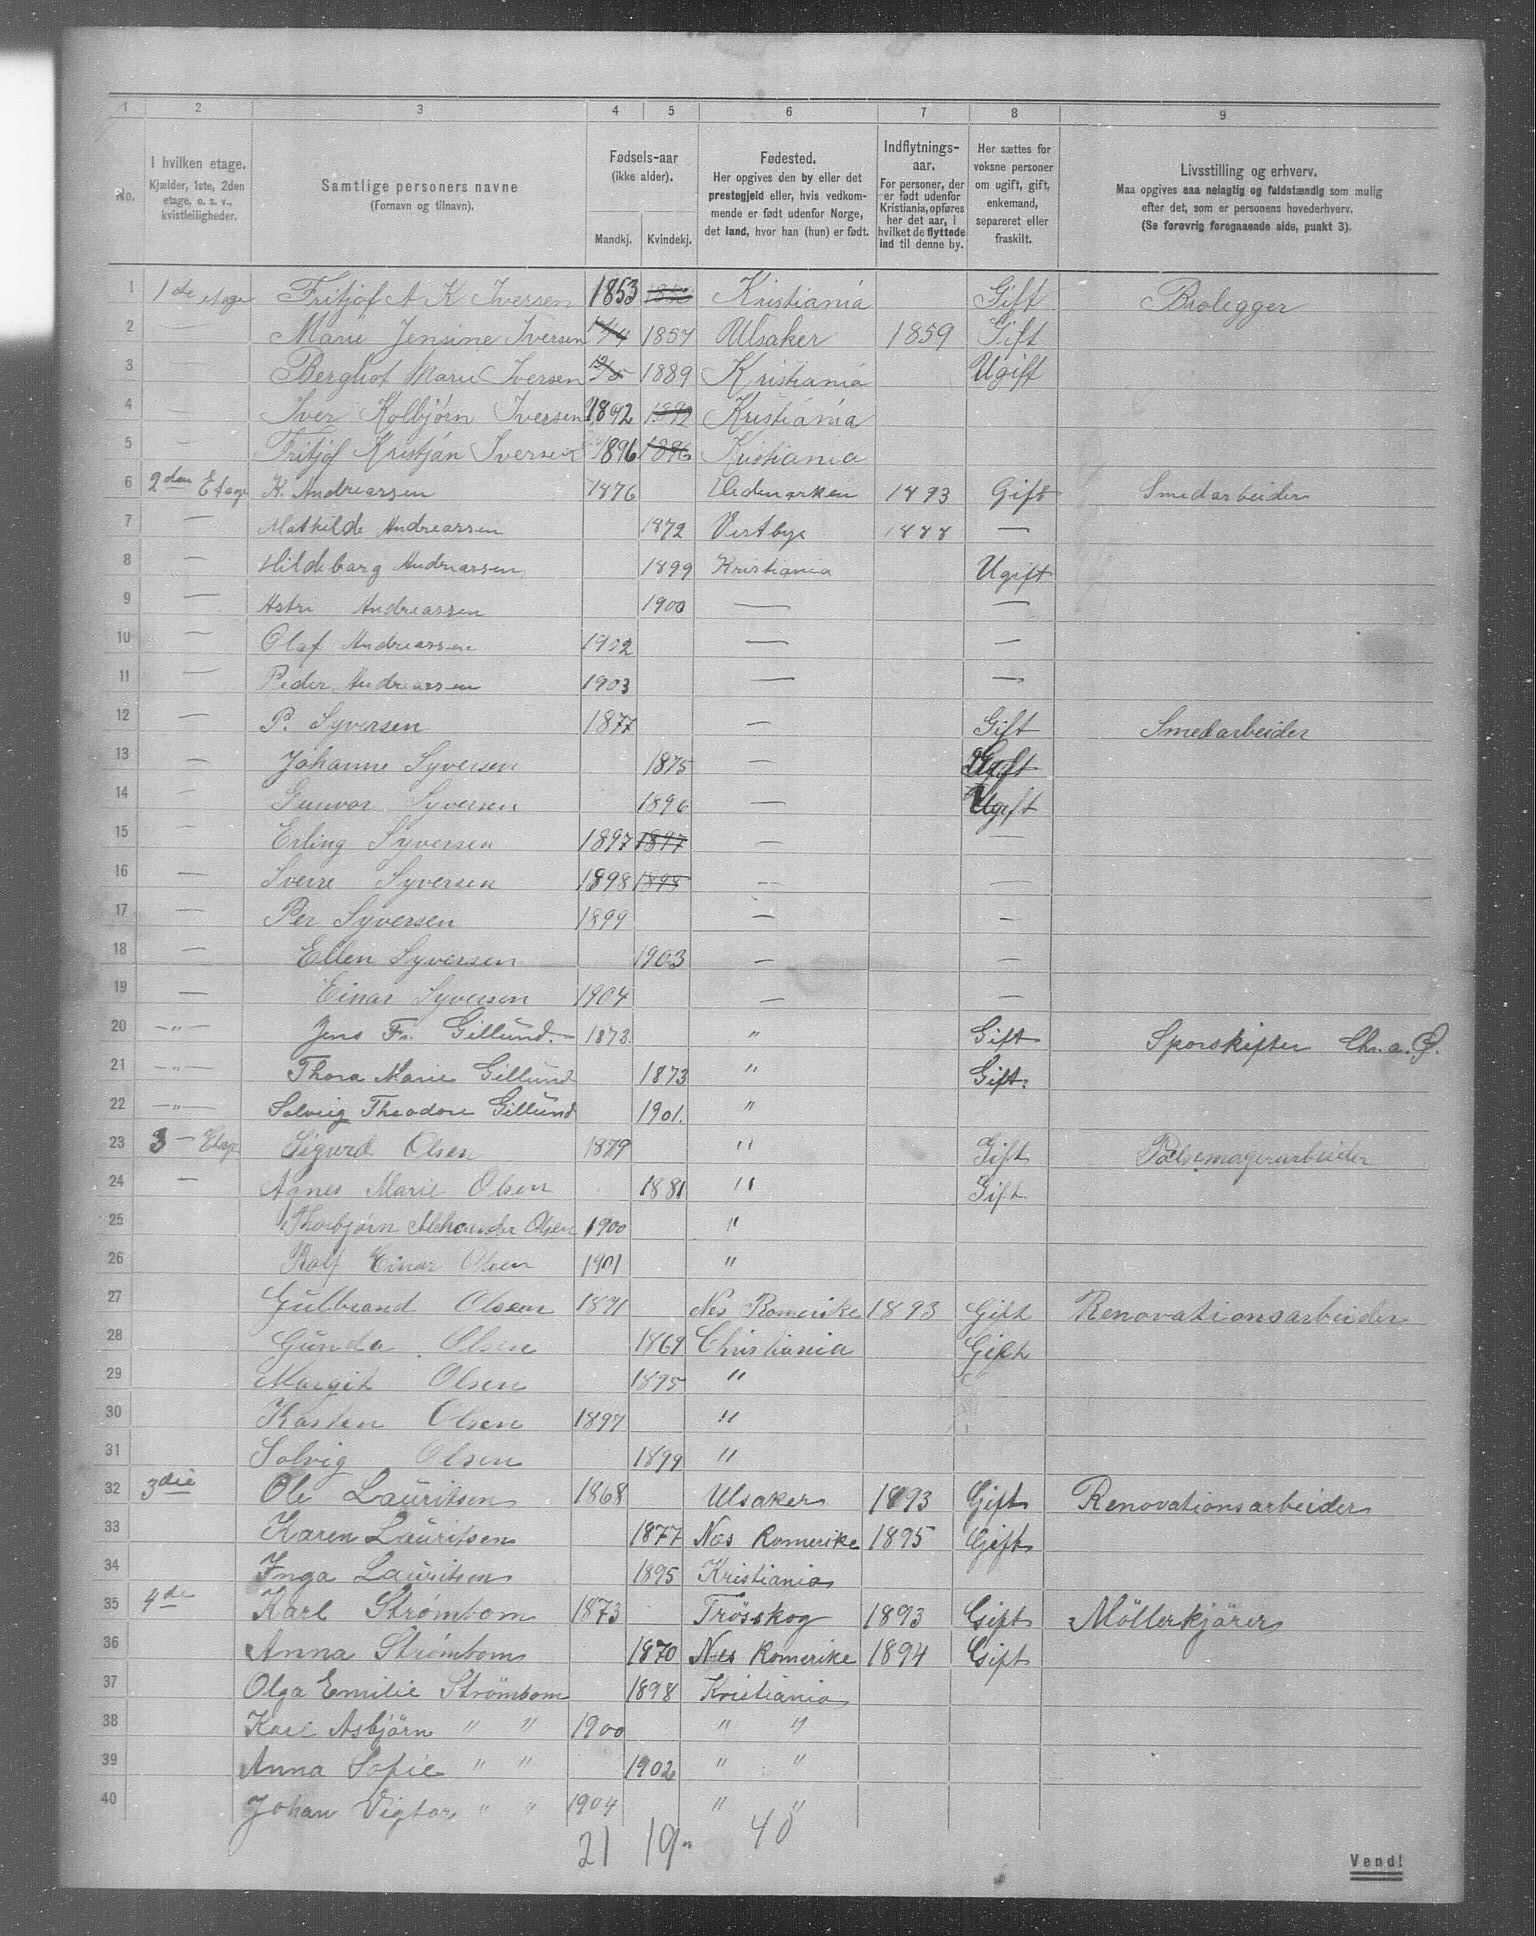 1 2 3 4 5 6 7 8 9
No. I hvilken etage. Kjælder, 1ste, 2den etage, o. s. v., kvistleiligheder. Samtlige personers navne (Fornavn og tilnavn). Fødsels-aar (ikke alder). Mandkj. Kvindekj. Fødested. Her opgives den by eller det prestegjeld eller, hvis vedkommende er født udenfor Norge, det land, hvor han (hun) er født. Indflytnings-aar. For personer, der er født udenfor Kristiania, opføres her det aar, i hvilket de flyttede ind til denne by. Her sættes for voksne personer om ugift, gift, enkemand, separeret eller fraskilt. Livsstilling og erhverv. Maa opgives saa nøiagtig og fuldstændig som mulig efter det, som er personens hovederhverv. (Se forøvrig foregaaende side, punkt 3).
1 1ste etage Fritjof A K Iversen 1853 Kristiania Gift Brolegger
2 — Marie Jensine Iversen 1857 Ulsaker 1859 Gift
3 Bergliot Marie Iversen 1889 Kristiania Ugift
4 — Iver Kolbjørn Iversen 1892 1892 Kristiania
5 — Fritjof Kristján Iversen 1896 1896 Kristiania
6 2den Etage K. Andreassen 1876 Hedmarken 1893 Gift Smedarbeider
7 — Mathilde Andreassen 1872 Vestbye 1888 —
8 — Hildebarg Andreassen 1899 Kristiania Ugift
9 — Astri Andreassen 1900 — —
10 — Olaf Andreassen 1902 — —
11 — Peder Andreassen 1903 — —
12 — P. Syversen 1877 — Gift Smedarbeider
13 — Johanne Syversen 1875 — Gift
14 — Gunvor Syversen 1896 — Ugift
15 — Erling Syversen 1897 1897 — —
16 — Sverre Syversen 1898 1898 — —
17 — Per Syversen 1899 — —
18 — Ellen Syversen 1903 — —
19 — Einar Syversen 1904 — —
20 —"— Jens Fr. Gillund. 1873. " Gift Sporskifter Chr.a. Ø.
21 —"— Thora Marie Gillund 1873 " Gift.
22 —"— Solveig Theodore Gillund 1901. "
23 3 — Etage Sigurd Olsen 1879 " Gift Pølsemagerarbeider
24 — Agnes Marie Olsen 1881 " Gift
25 Thorbjørn Alexander Olsen 1900 "
26 Rolf Einar Olsen 1901 "
27 Gulbrand Olsen 1871 Nes Romerike 1893 Gift Renovationsarbeider
28 Gunda Olsen 1869 Christiania Gift
29 Margit Olsen 1895 "
30 Karsten Olsen 1897 "
31 Solvig Olsen 1899 "
32 3die Ole Lauritsen 1868 Ulsaker 1893 Gift Renovationsarbeider
33 Karen Lauritsen 1877 Næs Romerike 1895 Gift
34 Inga Lauritsen 1895 Kristiania
35 4de Karl Strømbom 1873 Trösskog 1893 Gift Möllerkjörer
36 Anna Strømbom 1870 Næs Romerike 1894 Gift
37 Olga Emilie Strömbom 1898 Kristiania
38 Karl Asbjörn " " 1900 " "
39 Anna Sofie " " 1902 " "
40 Johan Vigtor " " 1904 " "
21 19 40
Vend!